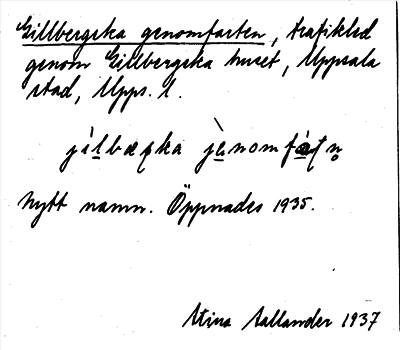 Gillbergska genomfarten, trafikled
genom Gillbergska huset, Uppsala
stad, Upps. l.
Nytt namn. Öppnades 1935.
Stina Aallander 1937